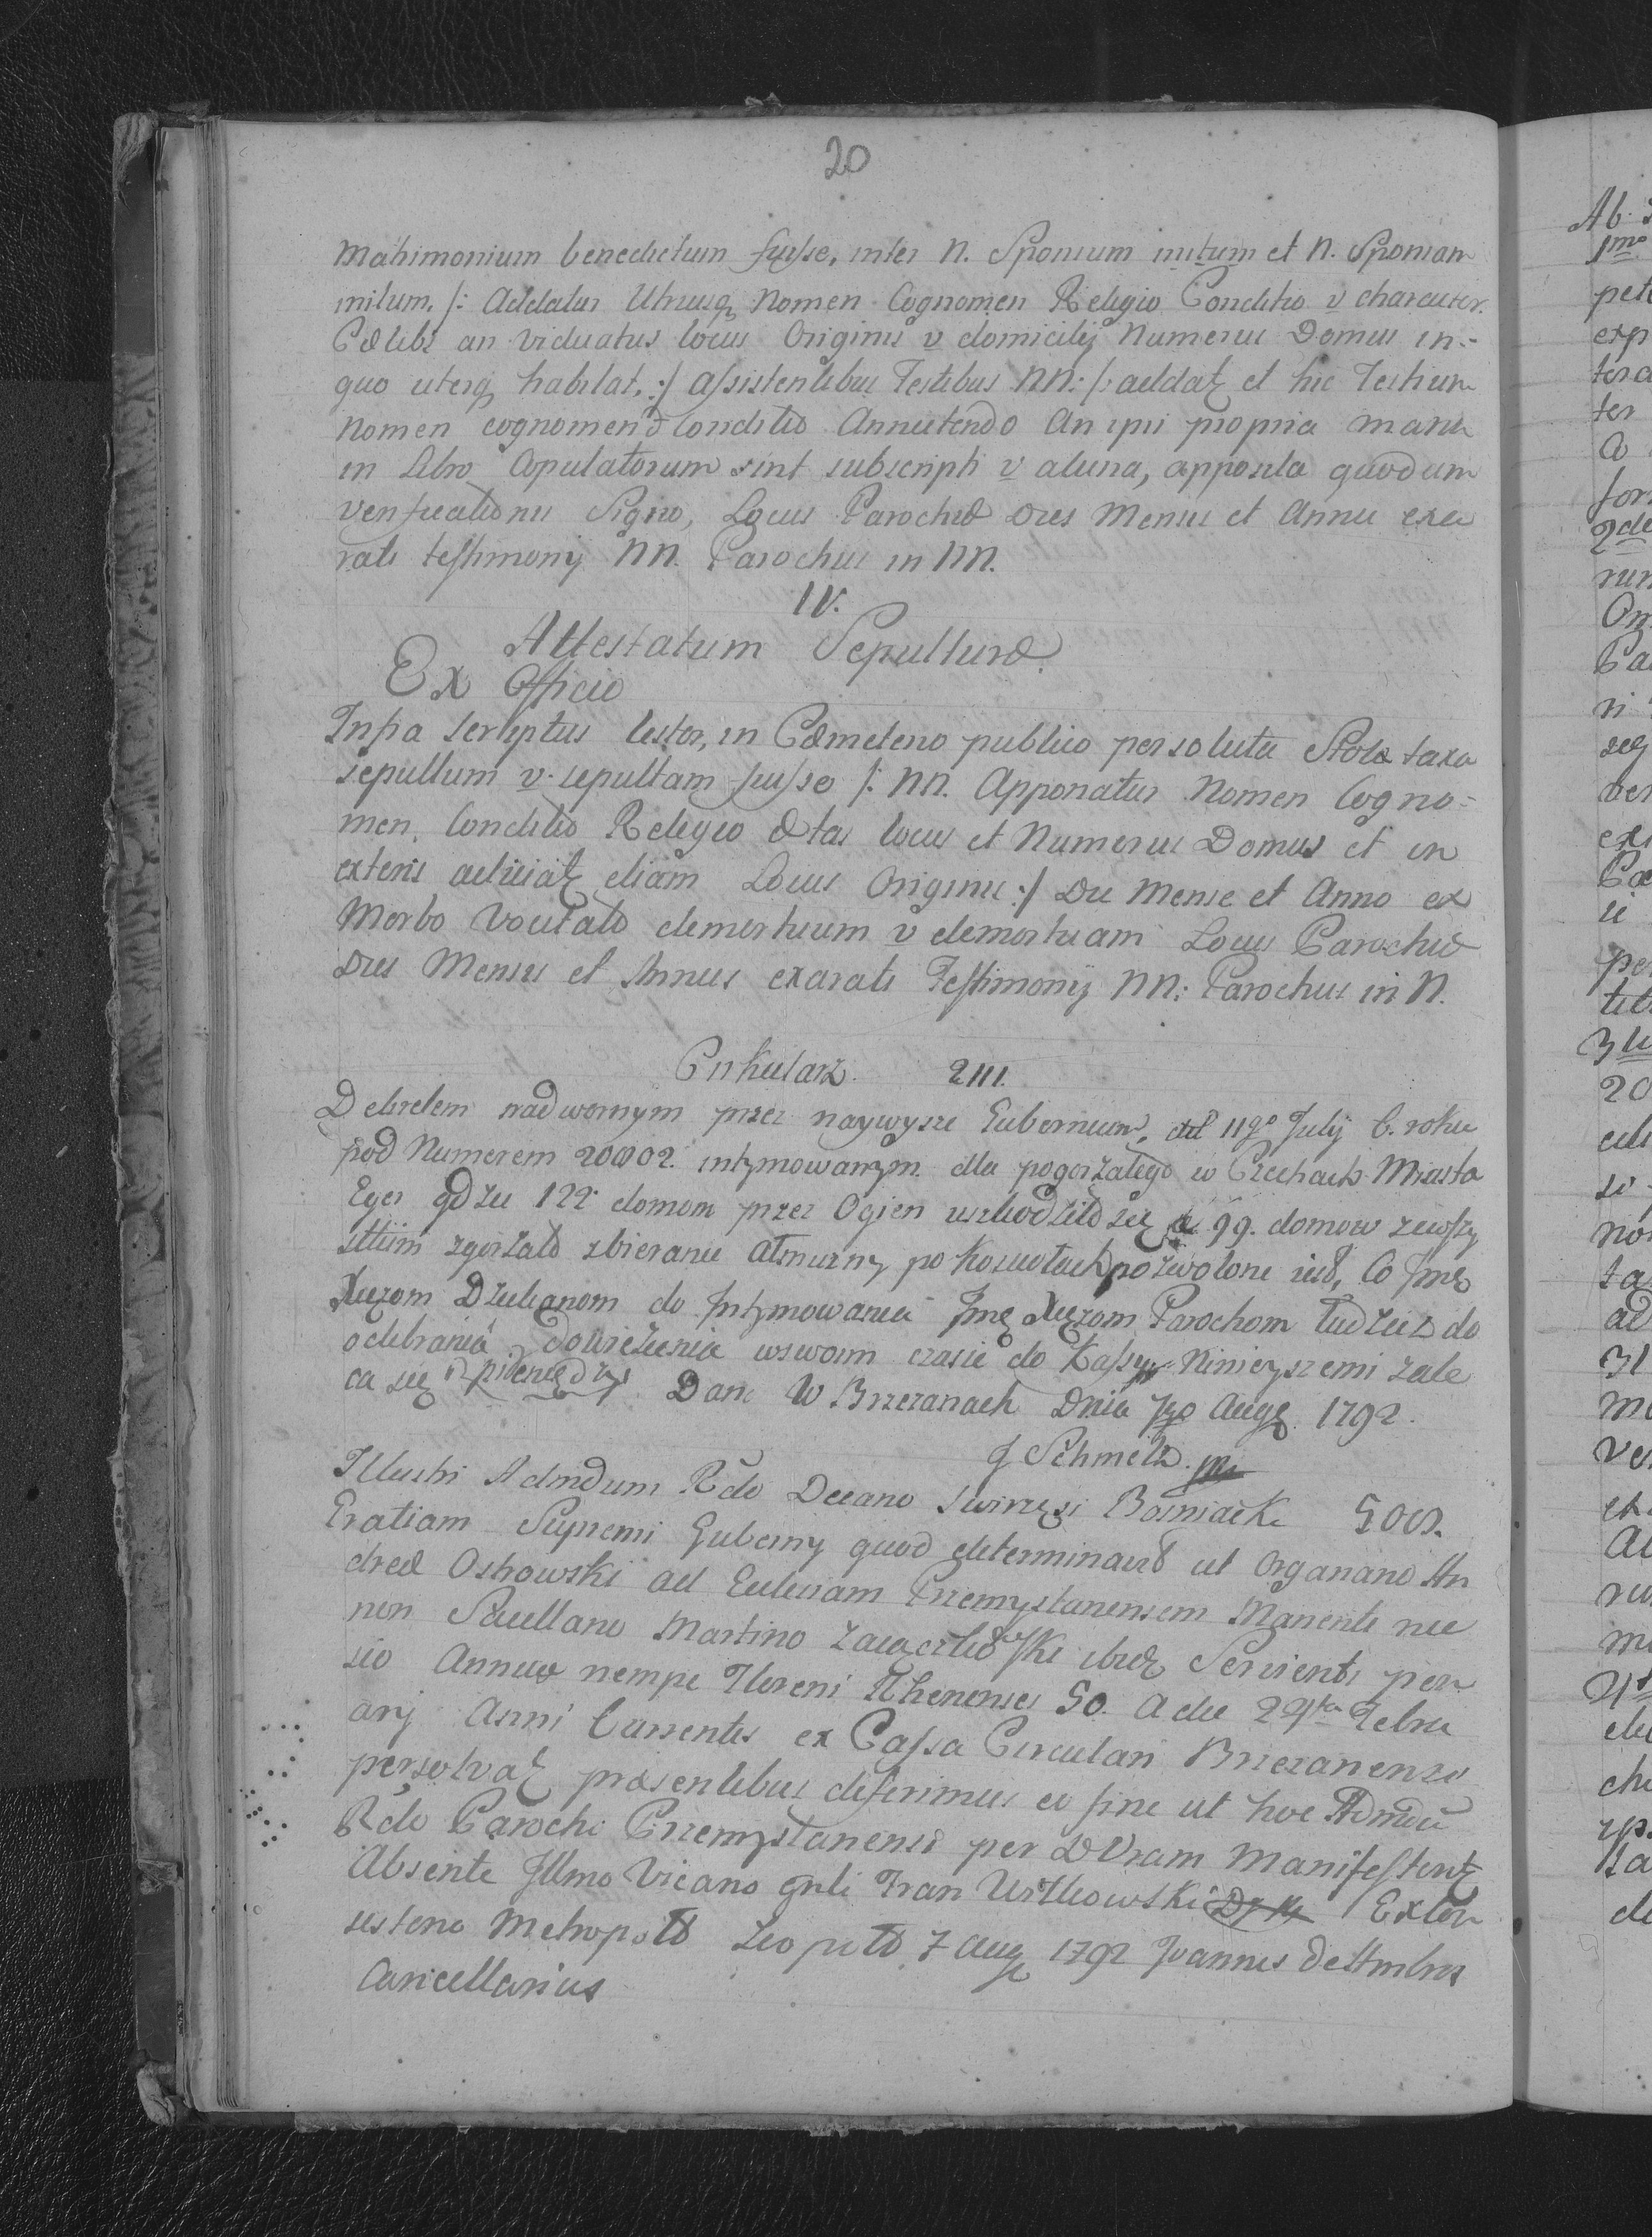 20
Matrimonium benedictum fuisse, inter N. Sponsum initum et N. Sponsam
initum. /: Addatur Utriusq Nomen Cognomen Religio Conditio v character.
Cælibs an viduatus locus Originis v domicilij Numerus Domus in-
quo uterq habitat. :/ assistentibus Testibus NN: /: addatz et hic Testium
Nomen cognomen Conditio Annectendo An ipsi propria manu
in Libro Copulatorum sint subscripti v aliena, apposito quodam
verificationis Signo, Locus Parochiæ Dies Mensis et Annus exa
rati testimonij NN. Parochus in NN.
IV.
Attestatum Sepulturæ
Ex Officio
Infra scriptus testor, in Cæmeterio publico persoluta Stolæ taxa
sepultum v. sepultam fuisse /: NN. Apponatur Nomen Cogno-
men, Conditio Religio Ætas locus et Numerus Domus et in
exteris adiiciatz etiam Locus Originis :/ Die Mense et Anno ex
Morbo vocitato demortuum v demortuam Locus Parochiæ
Dies Mensis et Annus exarati Testimonij NN: Parochus in N.
Cirkularz. 2111.
Dekretem nadwornym przez naywyzsze Gubernium, 11go Julij b. roku
pod Numerem 20002. intymowanym dla pogorzałego w Czechach Miasta
Eger gdzie 122 domom przez Ogien uszkodziło się a 99. domow zewszy
stkim zgorzało zbieranie Atmuzny po Kosciołach pozwolone iest, Co Jmę
Xięzom Dziekanom do Intymowania Jmę Xięzom Parochom tudziez do
odebrania dowiezienia wswoim czasie do Kassy Ninieyszemi zale
ca się pieniędzy. Dan W Brzezanach Dnia 7go Augę. 1792.
J Schmelz. mp
Illustri Admdum Rdo Decano Swirzssi Bosniacki 500.
Gratiam Supremi Guberny quod determinavit ut Organario An
dreæ Ostrowski ad Ecclesiam Przemyslanensem Manenti nec
non Sacellano Martino ibidz Servienti pen
sio Annua nempe Floreni Rhenenses 50. A die 24ta Febru
arj Anni Currentis ex Cassa Circulari Brzezanensi
persolvatz præsentibus deferimus eo fine ut hoc Admdū
Rdo Parocho Przemyslanensi per DVram manifestentz
Absente Illmo Vicario gnli Fran Witkowski Ex Con
sistorio Metropolt Leopolt 7 Aug 1792 Joannes
Cancellarius